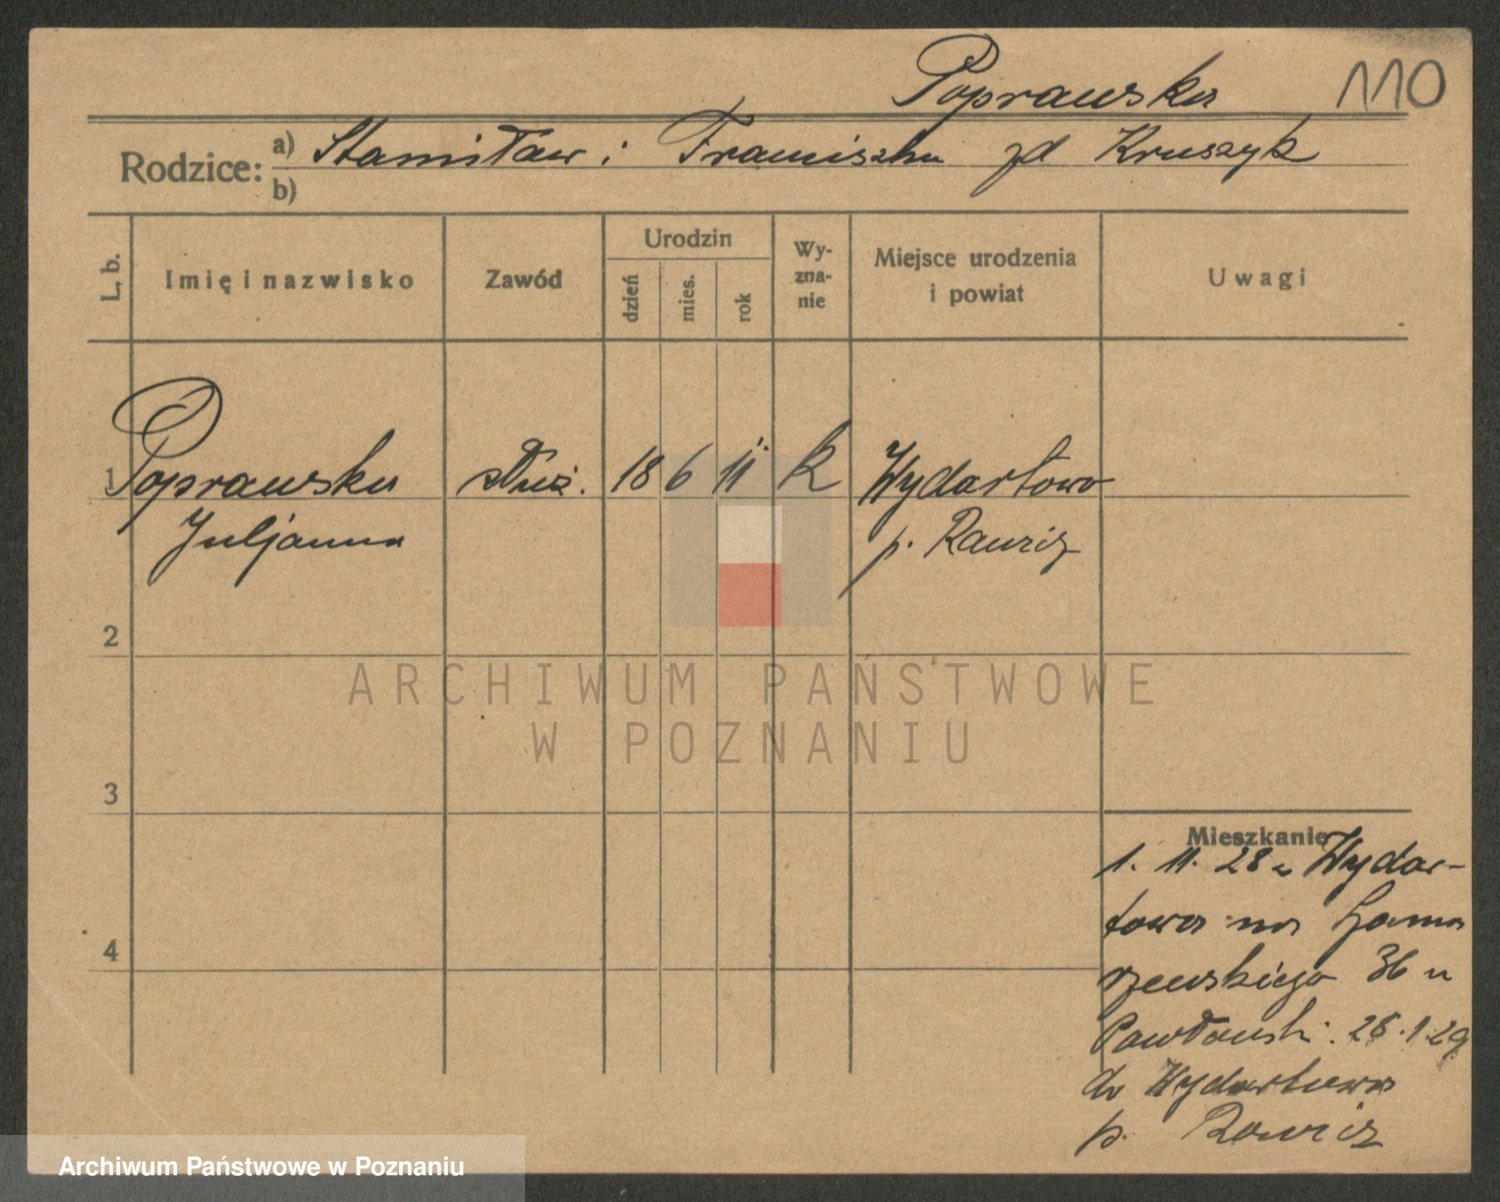 Poprawska
110
Rodzice: a) Stanisław i Franciszka zd Kruszyk
b)
L. b.
Imię i nazwisko
Zawód
Urodzin
dzień
mies.
rok
Wy-
zna-
nie
Miejsce urodzenia
i powiat
Uwagi
1 Poprawska służ. 18 6 11 k Wydartowo
Juljanna p. Rawicz
2
3
4
Mieszkanie
1. 11. 28 z Wydar-
towa na
rzewskiego 36 u
28.1.29
do Wydartowa
p. Rawicz
ARCHIWUM PAŃSTWOWE
W POZNANIU
Archiwum Państwowe w Poznaniu